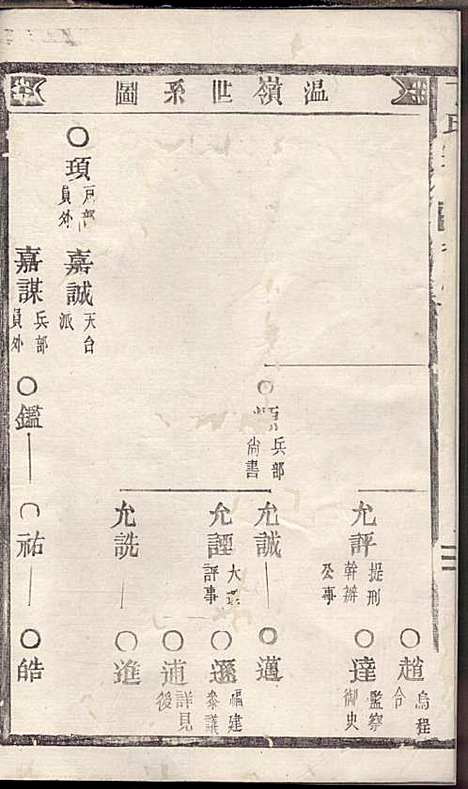 温嶺世系圖
趙 烏程令
允評 提刑幹辦公事
達 監察御史
兵部尚書
允誠
邁
允諲 大理評事
遜 福建參議
逋 詳見後
允詵
進
頊 戶部員外
嘉誠 天台派
嘉謀 兵部員外
鑑
祐
皓